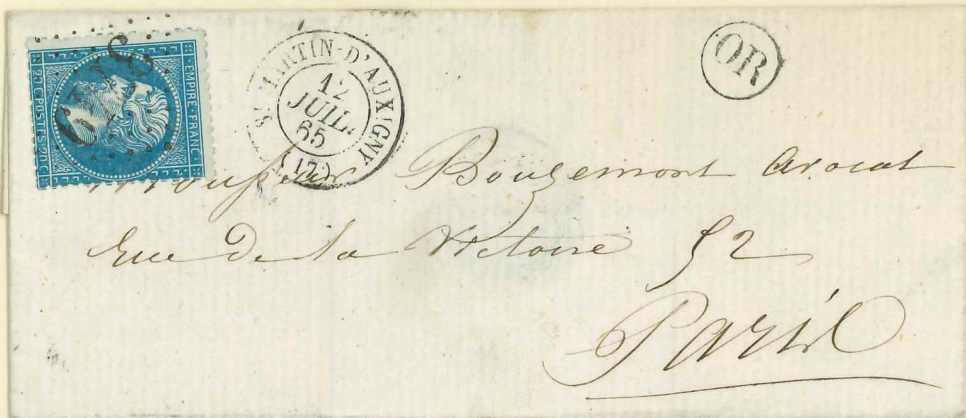 EMPIRE · FRANC ·
20 C POSTES 20 C
ST MARTIN-D'AUXIGNY
12
JUIL.
65
(17)
OR
Monsieur Bougemont Avocat
Rue de la Victoire 52
Paris